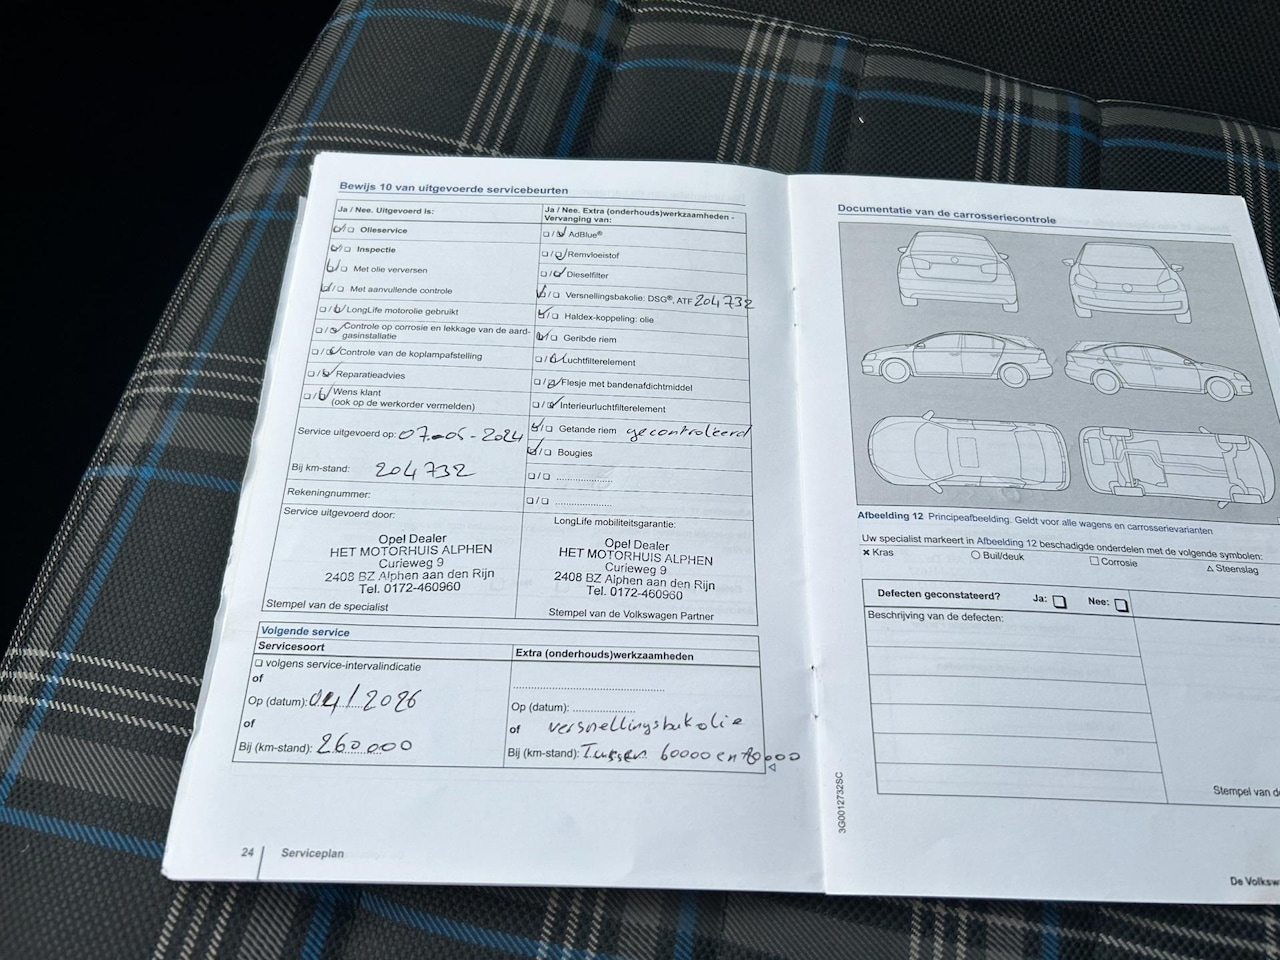 Bewijs 10 van uitgevoerde servicebeurten
Ja / Nee. Uitgevoerd is:
Olieservice
Inspectie
Met olie verversen
Met aanvullende controle
LongLife motorolie gebruikt
Controle op corrosie en lekkage van de aard-
gasinstallatie
Controle van de koplampafstelling
Reparatieadvies
Wens klant
(ook op de werkorder vermelden)
Service uitgevoerd op: 07-05-2024
Bij km-stand: 204732
Rekeningnummer:
Service uitgevoerd door:
Opel Dealer
HET MOTORHUIS ALPHEN
Curieweg 9
2408 BZ Alphen aan den Rijn
Tel. 0172-460960
Stempel van de specialist
Ja / Nee. Extra (onderhouds)werkzaamheden -
Vervanging van:
AdBlue®
Remvloeistof
Dieselfilter
Versnellingsbakolie: DSG®, ATF 204732
Haldex-koppeling: olie
Geribde riem
Luchtfilterelement
Flesje met bandenafdichtmiddel
Interieurluchtfilterelement
Getande riem gecontroleerd
Bougies
LongLife mobiliteitsgarantie:
Opel Dealer
HET MOTORHUIS ALPHEN
Curieweg 9
2408 BZ Alphen aan den Rijn
Tel. 0172-460960
Stempel van de Volkswagen Partner
Volgende service
Servicesoort
volgens service-intervalindicatie
of
Op (datum): 04/2026
of
Bij (km-stand): 260.000
Extra (onderhouds)werkzaamheden
Op (datum):
of versnellingsbakolie
Bij (km-stand): Tussen 60000 en 70000
24 Serviceplan
Documentatie van de carrosseriecontrole
Afbeelding 12 Principeafbeelding. Geldt voor alle wagens en carrosserievarianten
Uw specialist markeert in Afbeelding 12 beschadigde onderdelen met de volgende symbolen:
Kras Buil/deuk Corrosie Steenslag
Defecten geconstateerd? Ja: Nee:
Beschrijving van de defecten:
Stempel van d
3G0012732SC
De Volksw